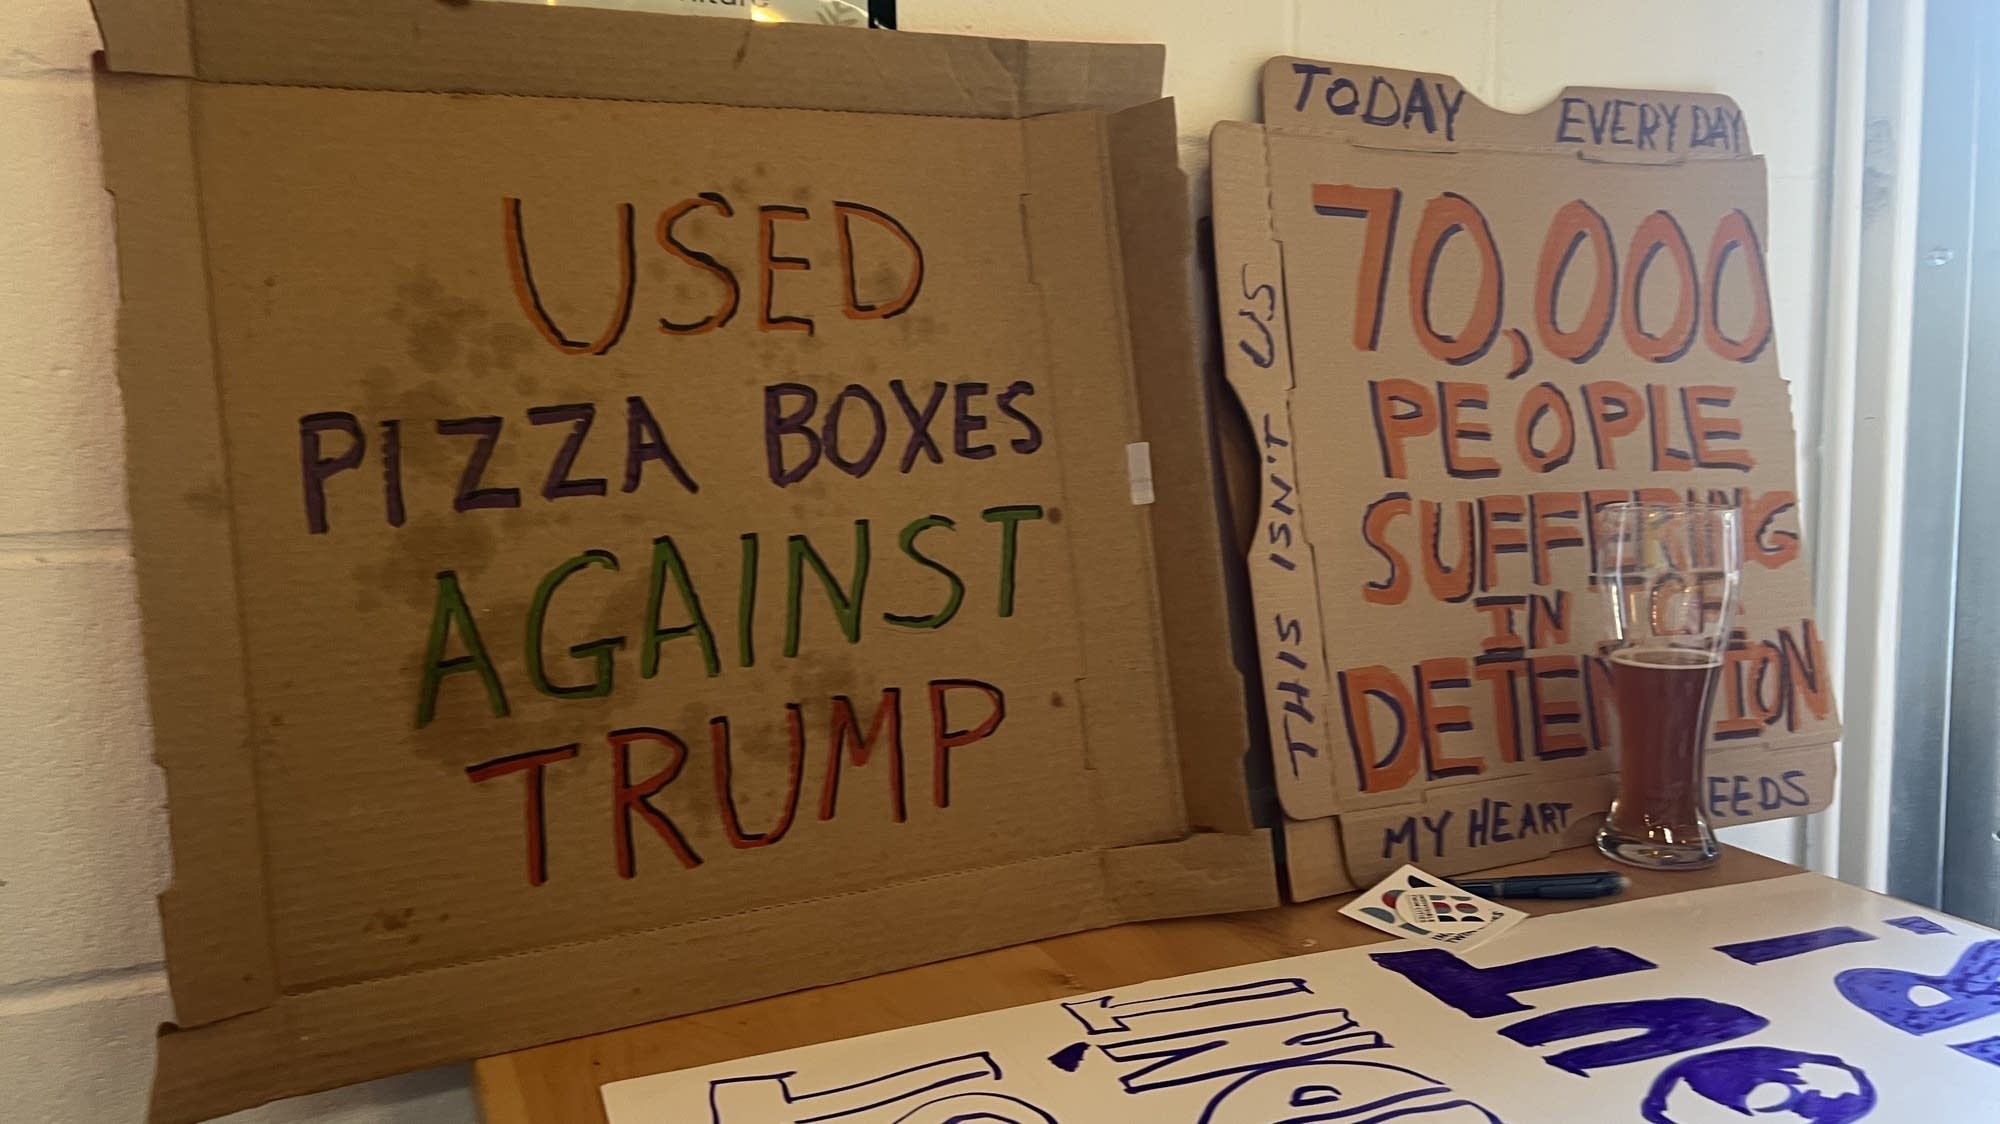 USED
PIZZA BOXES
AGAINST
TRUMP
TODAY EVERY DAY
THIS ISN'T US
70,000
PEOPLE
SUFFERING
IN ICE
DETENTION
MY HEART
OUT
DON'T